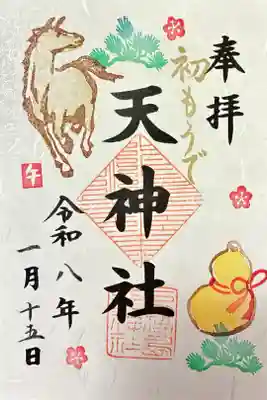 奉拝
初もうで
天神社
令和八年
一月十五日
午